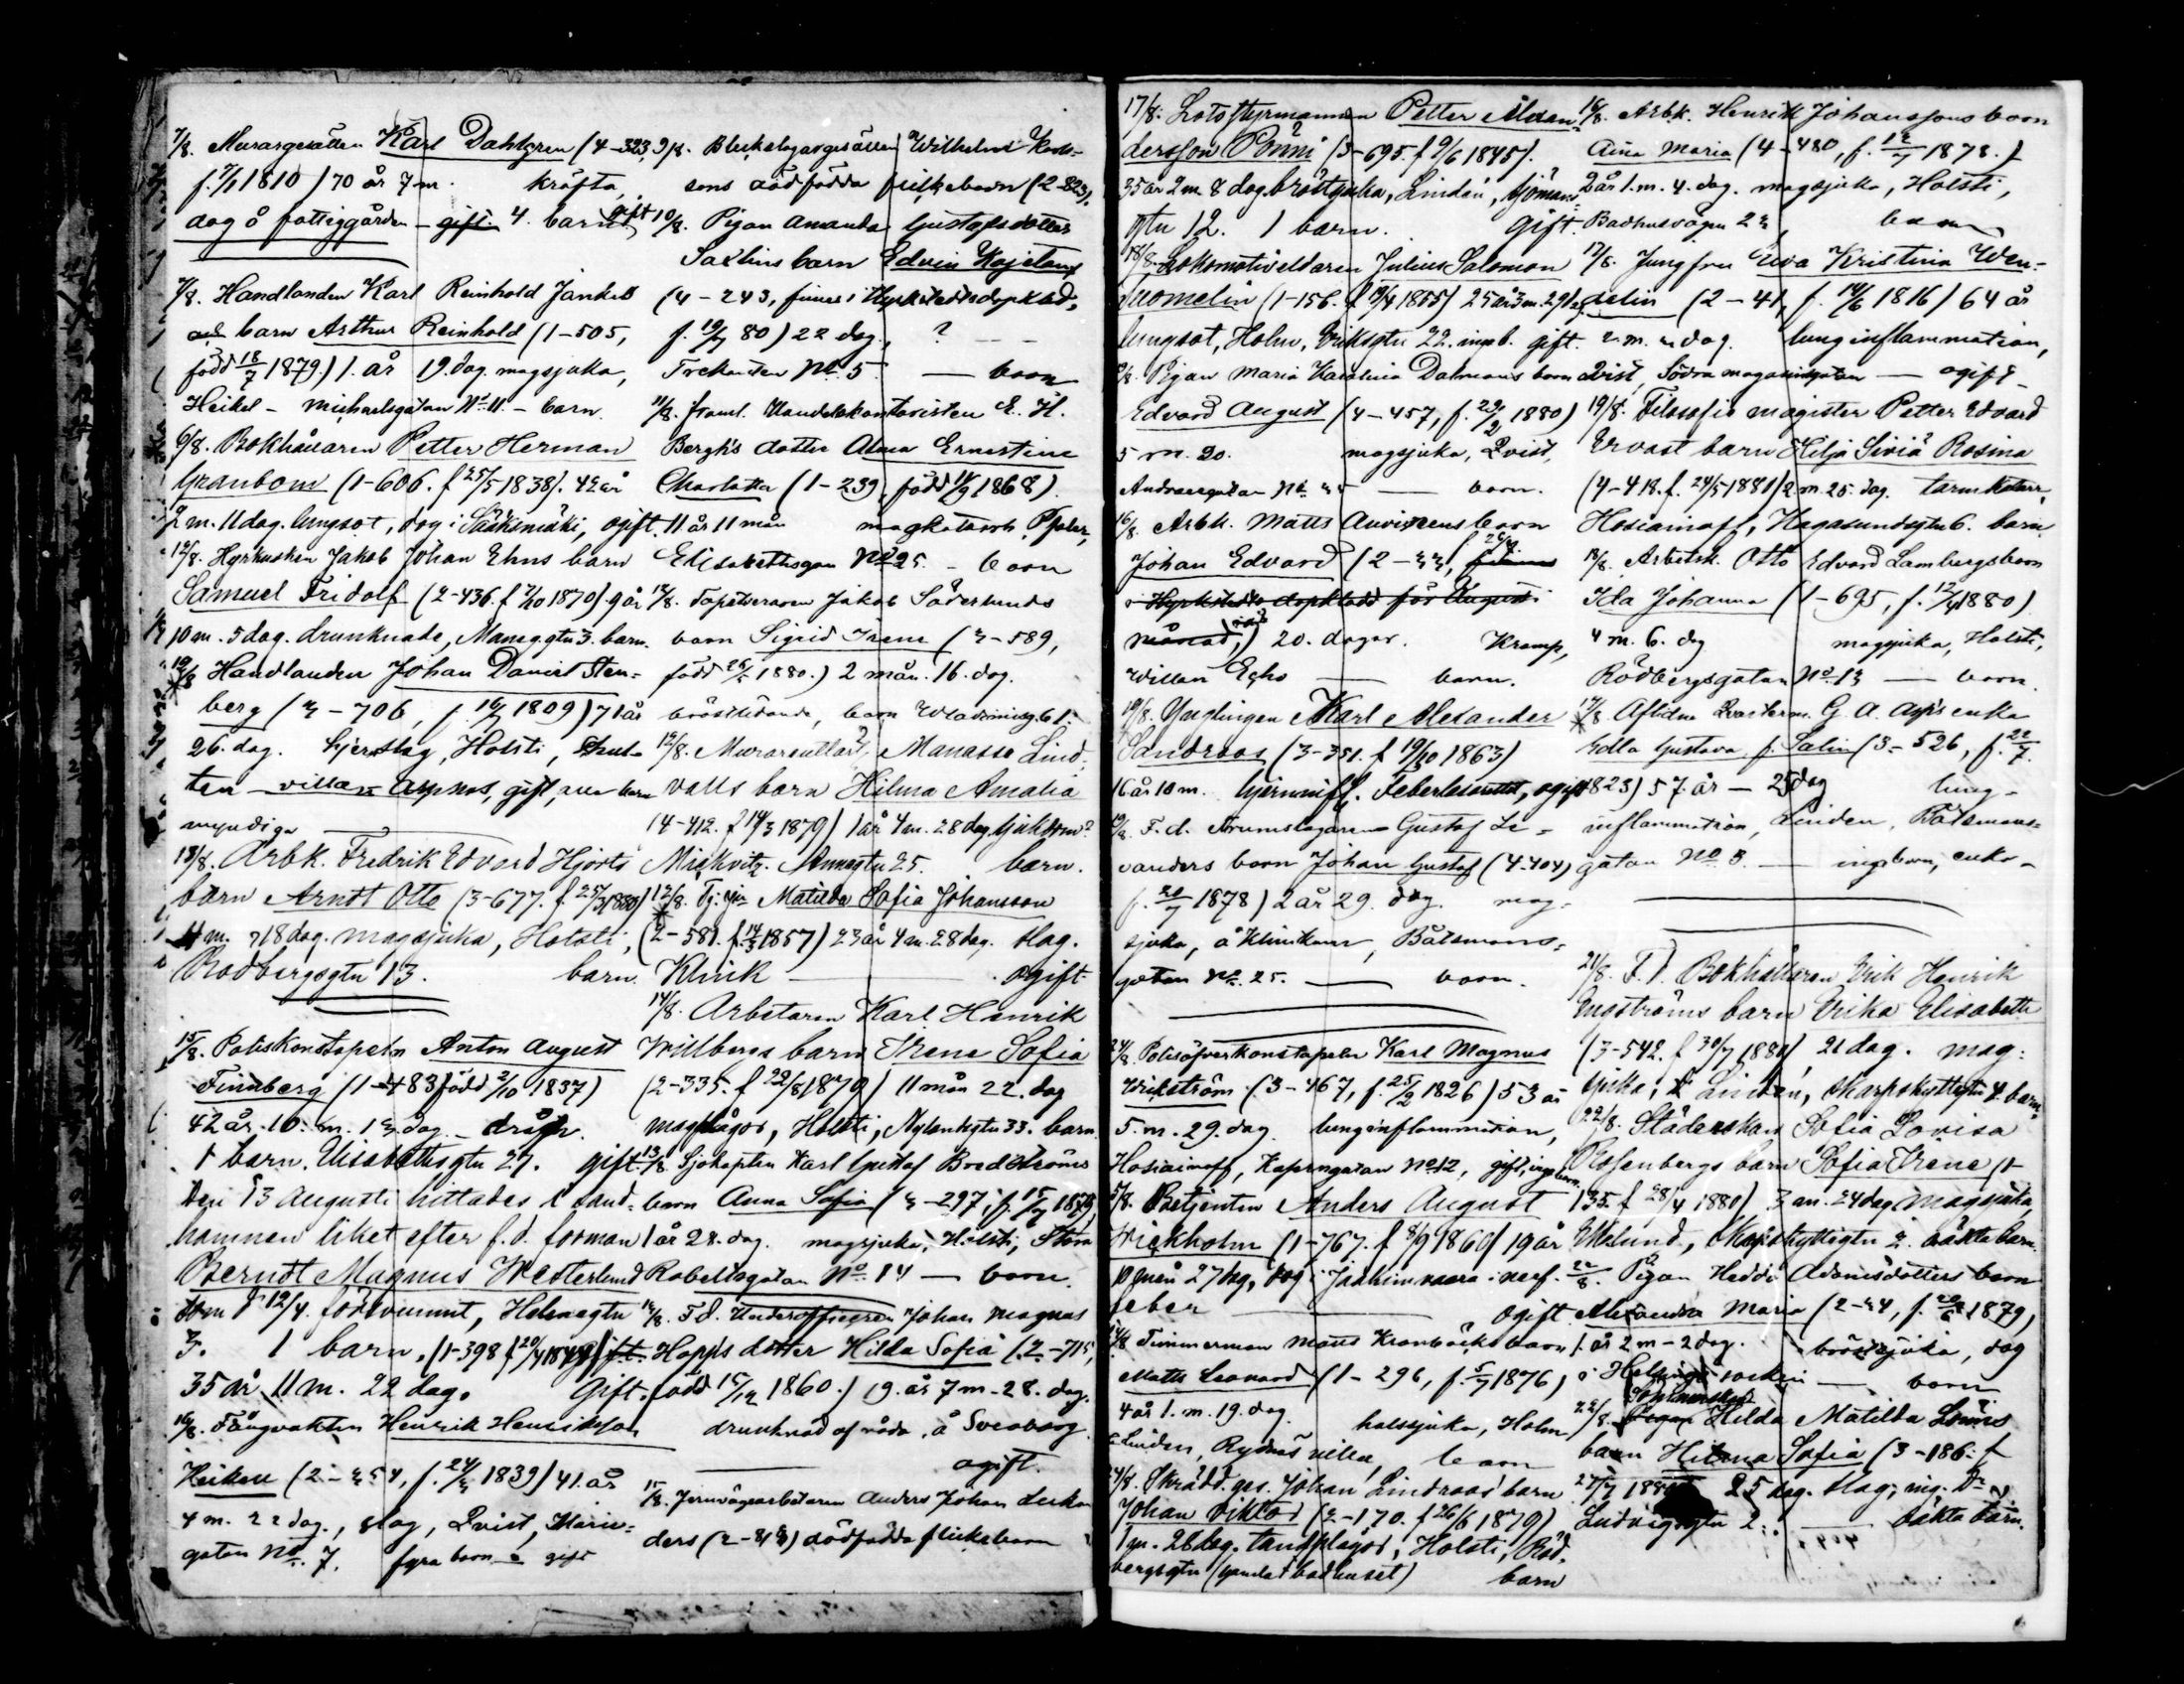 7/8. Murargesällen Karl Dahlgren (4-323,
f. 7/1 1810) 70 år 7 m. kräfta,
dog å fattiggården - gift. 4. barn gift
7/8. Handlanden Karl Reinhold
barn Arthur Reinhold (1-505,
född 18/7 1879.) 1. år 19. dag. magsjuka,
Heikel - Michaelsgatan No 11. - barn.
6/8. Bokhållaren Petter Herman
Granbom (1-606. f 25/5 1838). 42 år
2 m. 11 dag. lungsot, dog i Sääksmäki, ogift.
12/8. Hyrkusken Jakob Johan Ehns barn
Samuel Fridolf (2-436. f 7/10 1870). 9 år
10 m. 5 dag. drunknade, Maneg.gtn 3. barn.
Handlanden Johan Daniel Sten-
berg (3-706, f. 16/7 1809) 71 år
26. dag. hjerslag, Holsti,
villan Aspnäs, gift,
myndiga
13/8. Arbk. Fredrik Edvard Hjorts
barn Arndt Otto (3-677. f. 25/3 1880)
4 m. 18 dag. magsjuka, Holsti,
Rödbergsgtn 13. barn.
15/8. Poliskonstapeln Anton August
Finnberg (1-483 född 2/10 1837)
42 år. 10. m. 13. dag
1 barn. Elisabethsgtn 27. gift.
Den 13 Augusti hittades i Sand-
hamnen liket efter f.d. forman
Berndt Magnus Westerlund
som d 12/4. försvunnit, Helenegtn
3. 1 barn. (1-398 f 20/4
35 år 11 m. 22 dag. Gift.
16/8. Fångvakten Henrik Henriksson
Heiken (2-354, f. 24/3 1839) 41. år
4 m. 22 dag., slag, Qvist, Marie-
gatan No. 7. fyra barn gift
9/8. Bleckslagargesällen Wilhelms
sons dödfödda flickebarn (2-823).
10/8. Pigan Amanda Gustafsdotter
Saxlins barn Edvin Kajetans
(4-243, finnes i Kyrkstedts dopklad,
f. 19/7 80) 22 dag., ? - -
Trekanten No 5. - barn
11/8. framl. Handelskontoristen E. H.
Berghs dotter Alma Ernestine
Charlotta (1-239, född 11/9 1868).
11 år 11 mån magkatarrh,
Elisabethsgan No 25. - barn
12/8. Tapetseraren Jakob Söderlunds
barn Sigrid Irene (3-589,
född 26/5 1880.) 2 mån. 16. dag.
bröstlidande, barn Wladimirsg. 61.
12/8. Murare Manasse Lind-
valls barn Hilma Amalia
(4-412. f 14/3 1879) 1 år 4 m. 28 dag
Mickvitz. Annegtn 25. barn.
12/8. Matilda Sofia Johansson
(2-581. f. 14/3 1857) 23 år 4 m. 28 dag. slag.
Klinik - ogift.
14/8. Arbetaren Karl Henrik
Willbergs barn Irene Sofia
(2-335. f 22/8 1879) 11 mån 22. dag
magplågor, Holsti, Nylandsgtn 33. barn.
13/8. Sjökapten Karl Gustaf Bredströms
barn Anna Sofia (3-297, f. 15/7 1879,
1 år 28. dag. magsjuka, Holsti, Stora
Robertsgatan No 14 - barn.
14/8. F.d. Underofficeren Johan Magnus
Hopps dotter Hilda Sofia (2-715,
född 15/12 1860.) 19. år 7 m - 28. dag.
drunknad af våda, å Sveaborg.
ogift.
15/8. Jernvägsarbetaren Anders Johan
ders (2-) dödfödda flickebarn
17/8. Lotsstyrmannen Petter Alexan-
dersson Pönni (3-695. f 9/6 1845).
35 år 2 m. 8 dag. bröstsjuka, Lindén, Sjömans-
gtn 12. 1 barn. Gift.
18/8. Lokomotiveldaren Julius Salomon
Luomelin (1-156. f 19/4 1855) 25 år 3 m. 29 dag
lungsot, Holm, Eriksgtn 22. ing. b. gift.
Pigan Maria Karolina Dalmans barn
Edvard August (4-457, f. 29/2 1880)
5 m. 20. magsjuka, Qvist,
Andreegatan No - barn.
16/8. Arbk. Matts Auvinens barn
Johan Edvard (2-33, f 26/7
i Kyrkstedts dopkladd för Augusti
månad,) 20. dagar. Kramp,
Villan Echo - barn.
19/8. Ynglingen Karl Alexander
Sandroos (3-351. f 19/10 1863)
16 år 10 m. hjerninfl. Feberlasarettet, ogift
19/8. F.d. Trumslagaren Gustaf Le-
vanders barn Johan Gustaf (4-404)
f. 20/7 1878) 2 år 29. dag. mag-
sjuka, å Kliniken, Båtsmans-
gatan No. 25. - barn.
24/8. Polisöfverkonstapeln Karl Magnus
Wikström (3-467, f. 25/2 1826) 53 år
5. m. 29. dag. lunginflammation,
Hosiainoff, Kaserngatan No 12, gift, inga barn.
Betjenten Anders August
Wickholm (1-767. f 8/9 1860) 19 år
10 mån 27 dag, dog i Jaakimvaara i nerf.
feber - ogift
Timmerman Matts Kronbäcks barn
Matts Leonard (1-296, f. 5/7 1876)
4 år 1. m. 19. dag. halssjuka, Holm,
Linden, Rydnäs villa, barn
24/8. Skrädd. ges. Johan Lindroos' barn
Johan Viktor (2-170. f 26/6 1879)
1 m. 28 dag. tandplågor, Holsti, Röd-
bergsgtn (gamla badhuset) barn
16/8. Arbk. Henrik Johanssons barn
Aina Maria (4-480, f. 12/7 1878.)
2 år 1. m. 4. dag. magsjuka, Holsti,
Badhusvägen 23, barn
17/8. Jungfru Ewa Kristina Wen-
delin (2-41, f. 14/6 1816) 64 år
2. m. 3 dag. lunginflammation,
Qvist, Södra magasinsgatan - ogift -
19/8. Filosofie magister Petter Edvard
Ervast barn Hilja Siviä Rosina
(4-418. f. 24/5 1880) 2 m. 25. dag. tarmkatarr,
Hosiainoff, Hagasundsgtn 6. barn.
18/8. Arbetsk. Otto Edvard Lambergs barn
Ida Johanna (1-695, f. 12/4 1880)
4 m. 6. dag magsjuka, Holsti,
Rödbergsgatan No 13 - barn.
17/8. Aflidne G. A. Asps enka
Edla Gustava f. Salin (3-526, f. 22/7.
1823) 57 år - 25 dag lung-
inflammation, Linden, Båtsmans-
gatan No 3. - inga barn, enka -
21/8. F.d. Bokhållaren Erik Henrik
Engströms barn Erika Elisabeth
(3-542. f 30/7 1880) 21 dag. mag-
sjuka, Dr Lindén, Skarpskyttegtn 4. barn.
22/8. Städerskan Sofia Lovisa
Rosenbergs barn Sofia Irene (1-
135. f 28/4 1880) 3 m. 24 dag magsjuka,
Ekelund, Skarpskyttegtn 2. oäkta barn.
22/8. Pigan Hedda Adamsdotters barn
Alexandra Maria (2-34, f. 20/6 1879)
1. år 2 m - 2 dag. bröstsjuka, dog
i Helsinge socken - barn
22/8. Pigan Hilda Matilda
barn Hilma Sofia (3-186. f
27/7 1880 25 dag. slag, ing. Dr
Ludvigsgtn 2. - oäkta barn.